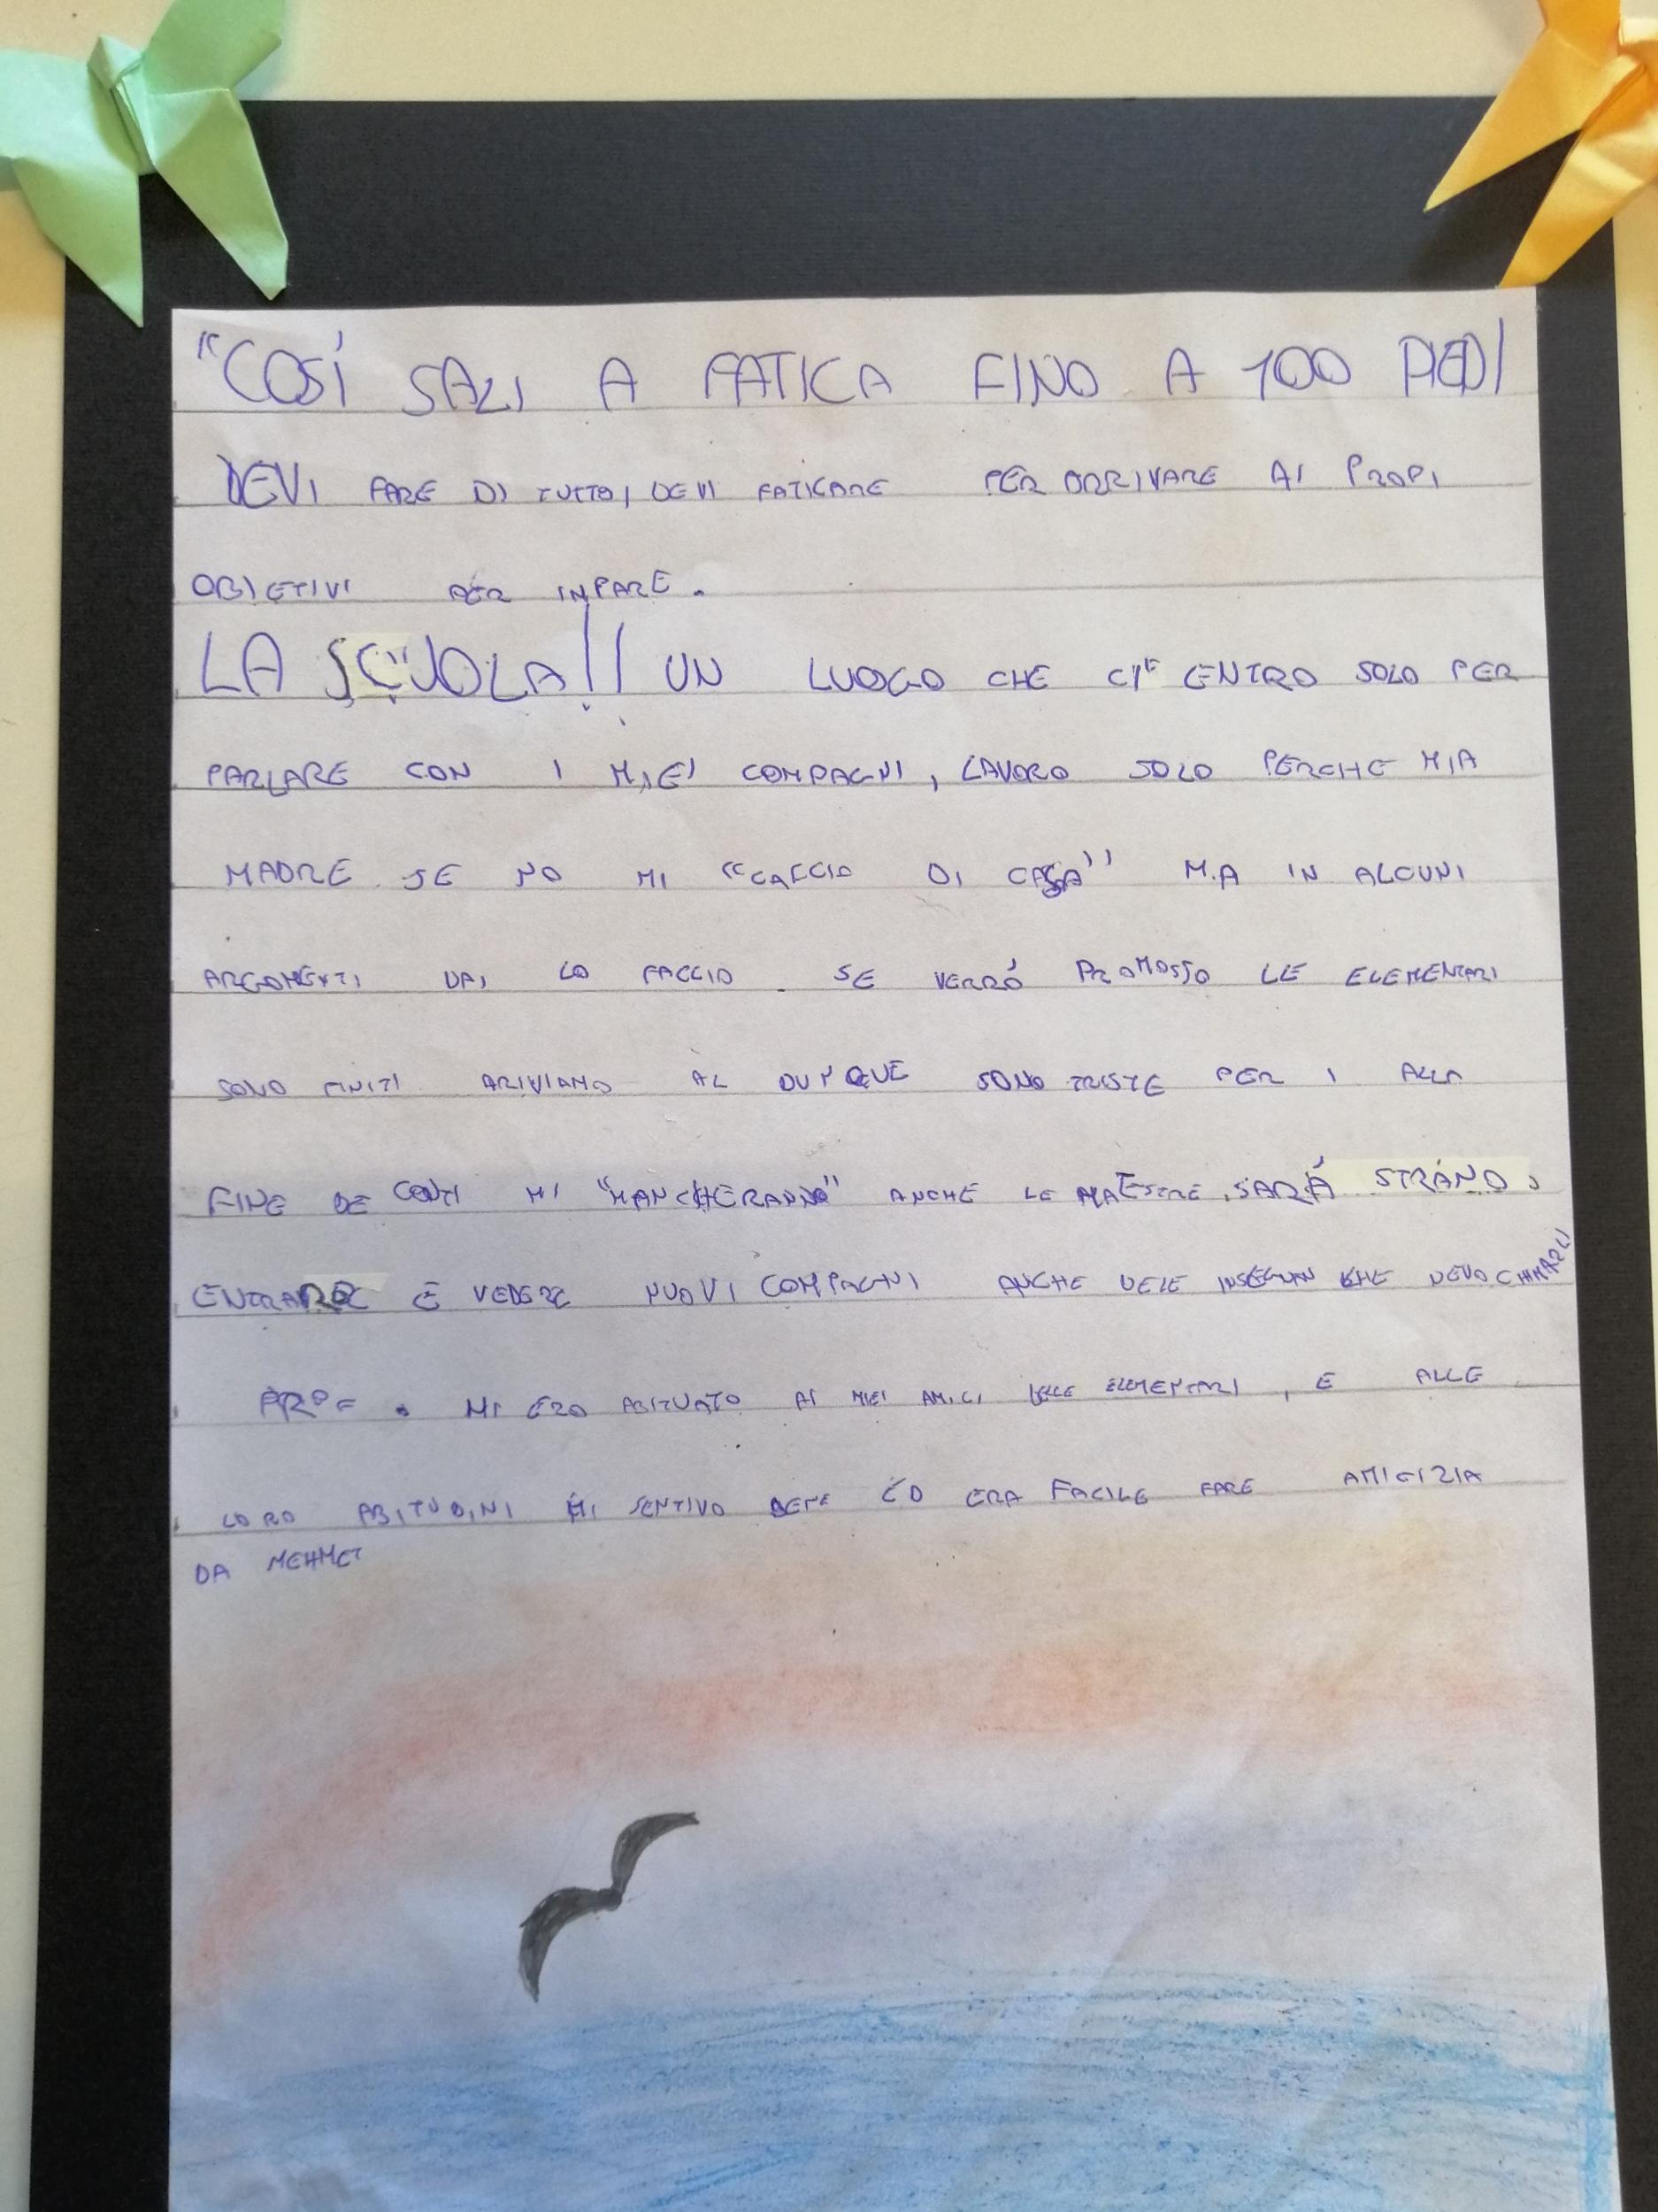 "COSÍ SALI A FATICA FINO A 100 PIEDI
DEVI FARE DI TUTTO, DEVI FATICARE PER ARRIVARE AI PROPI
OBIETIVI PER INPARE.
LA SCUOLA!! UN LUOGO CHE CI ENTRO SOLO PER
PARLARE CON I MIEI COMPAGNI, LAVORO SOLO PERCHE MIA
MADRE SE NO MI "CACCIO DI CASA" MA IN ALCUNI
ARGOMENTI DAI LO FACCIO. SE VERRÓ PROMOSSO LE ELEMENTARI
SONO FINITI ARIVIAMO AL DUNQUE SONO TRISTE PER I ALLA
FINE DE CONTI MI "MANCHERANNO" ANCHE LE MAESTRE, SARÁ STRANO,
ENTRARE E VEDERE NUOVI COMPAGNI ANCHE CHE DEVO CHIAMARLI
PROF. MI ERO ABITUATO AI MIEI AMICI DELLE ELEMENTARI, E ALLE
LORO ABITUDINI MI SENTIVO BENE ED ERA FACILE FARE AMICIZIA
DA MEHMET